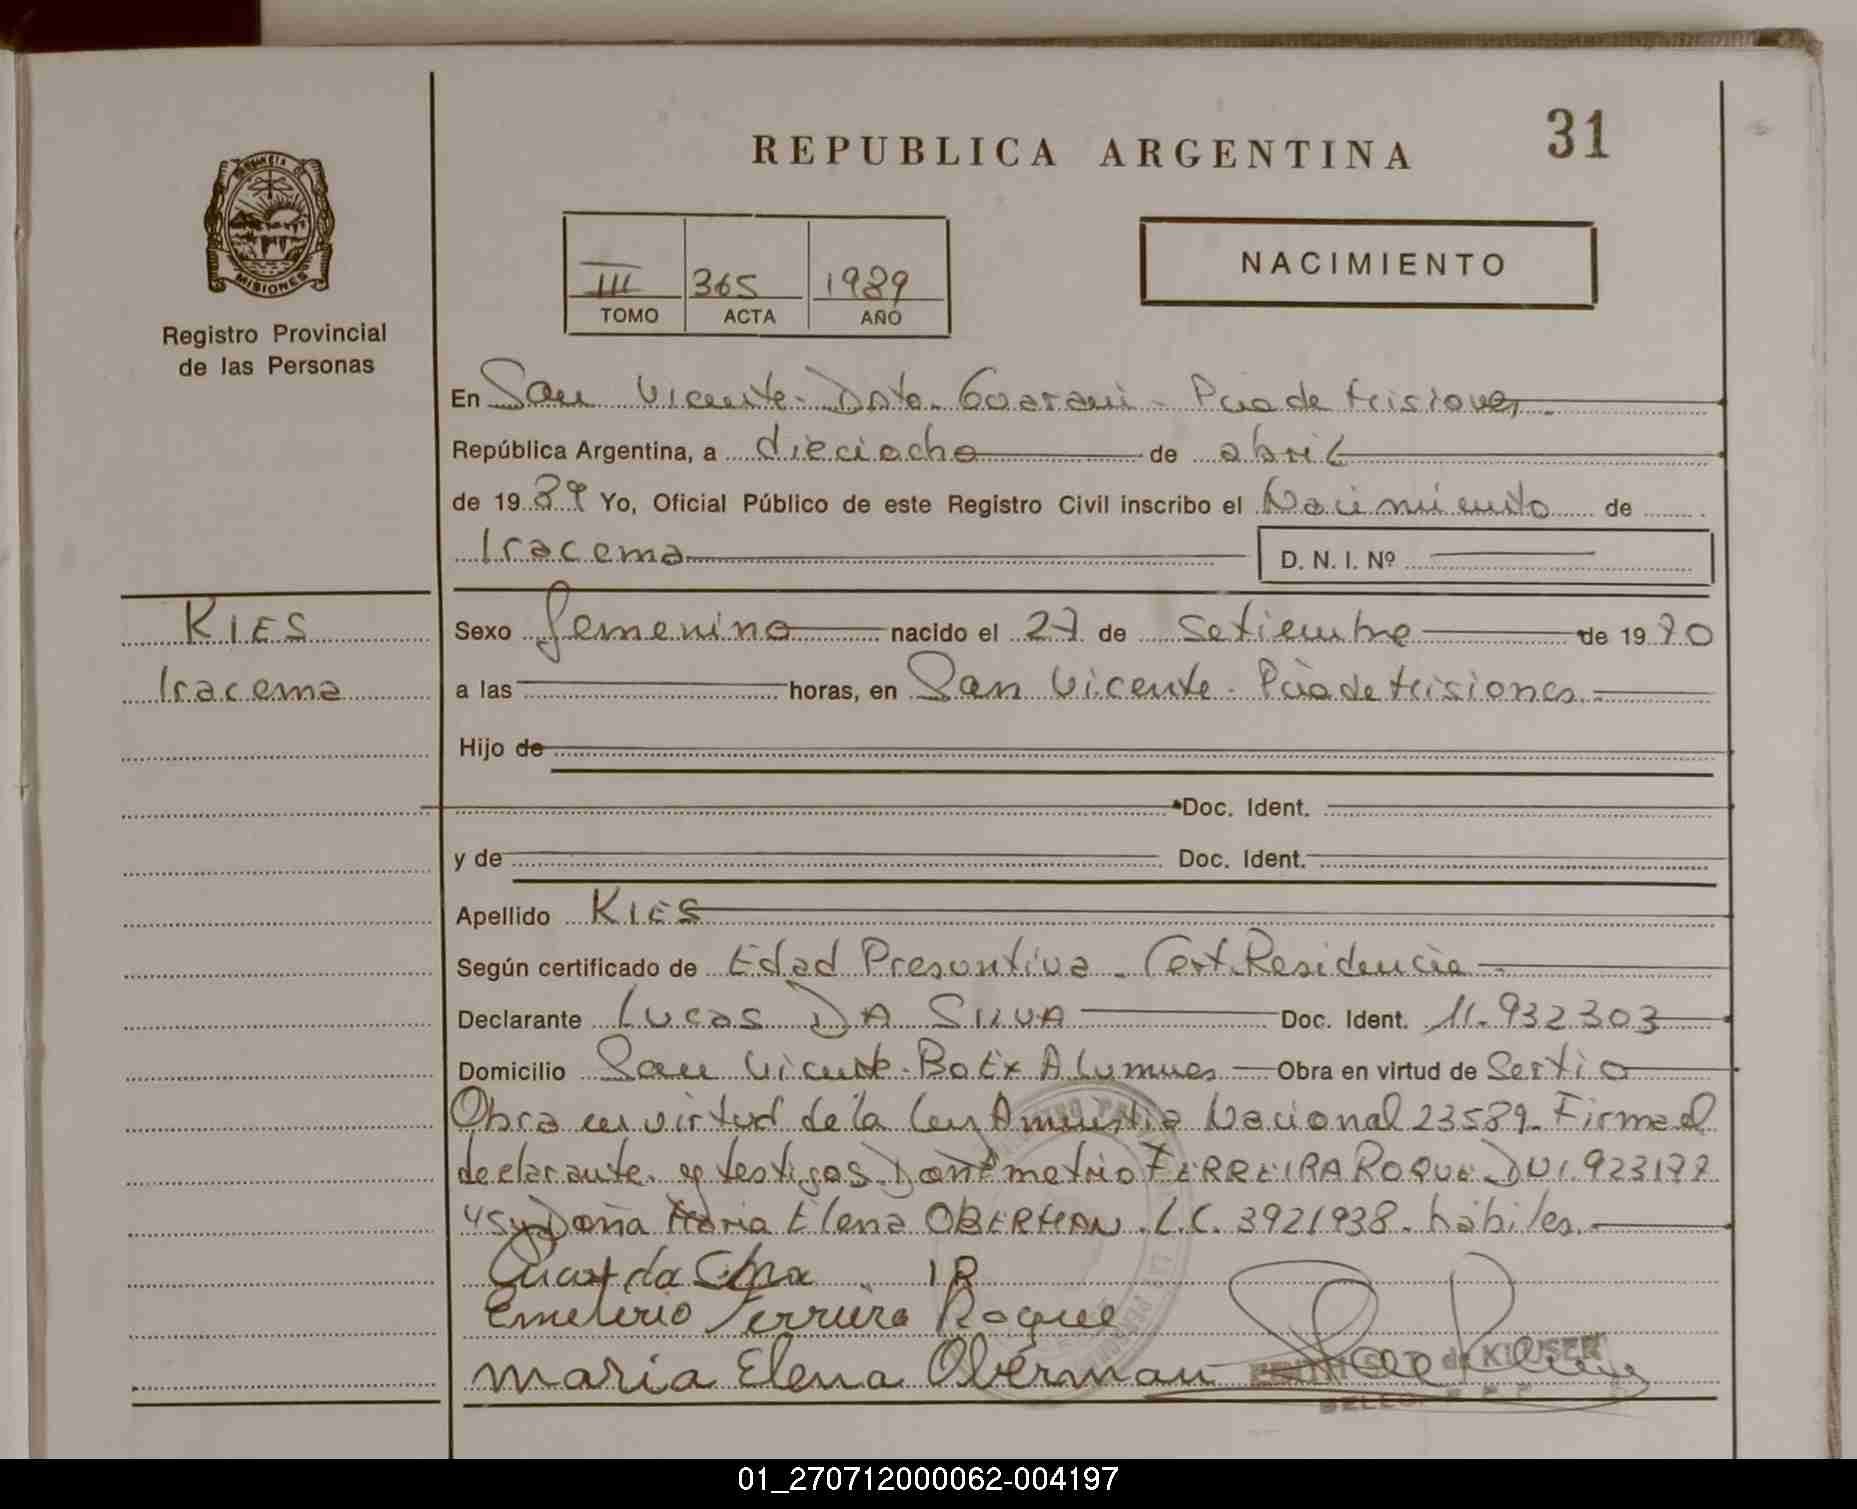 31
REPUBLICA ARGENTINA
MISIONES
Registro Provincial
de las Personas
III 365 1989
TOMO ACTA AÑO
NACIMIENTO
En San Vicente - Dpto. Guarani - Pcia de Misiones.
República Argentina, a dieciocho de abril
de 1989 Yo, Oficial Público de este Registro Civil inscribo el Nacimiento de
Iracema D. N. I. Nº
KIES
Iracema
Sexo femenino nacido el 27 de setiembre de 1970
a las horas, en San Vicente - Pcia de Misiones.
Hijo de
Doc. Ident.
y de Doc. Ident.
Apellido KIES
Según certificado de Edad Presuntiva - Cert. Residencia
Declarante Lucas DA SILVA Doc. Ident. 11.932303
Domicilio San Vicente - Bo Ex Alumnos Obra en virtud de Sertio
Obra en virtud de la Ley Amnistia Nacional 23589. Firma el
declarante y testigos FERREIRA ROQUE
Doña Maria Elena OBERMAN. L.C. 3921938. habiles.
Lucas da
Emeterio Ferreira Roque
Maria Elena Oberman
de KIUSER
01_270712000062-004197